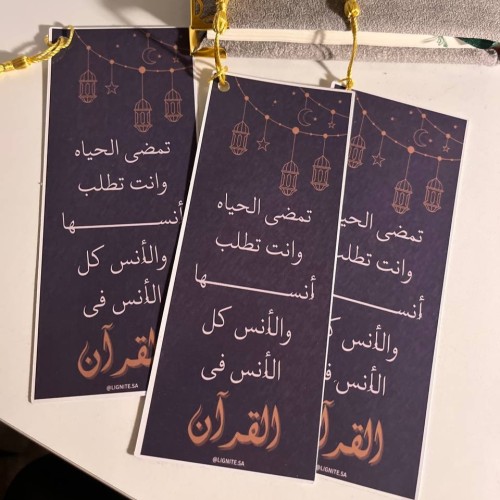 تمضى الحياه
وانت تطلب
أنســـــــــها
والأنس كل
الأنس فى
القرآن
@LIGNITE.SA
تمضى الحياه
وانت تطلب
أنســـــــــها
والأنس كل
الأنس فى
القرآن
@LIGNITE.SA
تمضى الحياه
وانت تطلب
أنســـــــــ
والأنس
الأنس فى
القرآن
@LIGNITE.SA